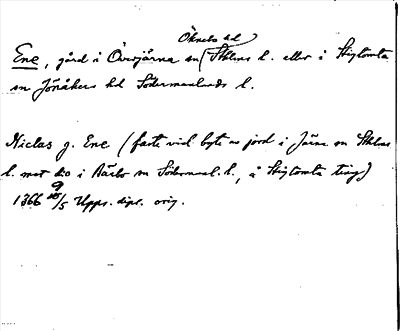 Öknebo hd
Ene, gård i Överjärna sn (Sthlms l. eller i Stigtomta
sn Jönåkers hd Södermanlands l.
Niclas j. Ene (faste vid byte av jord i Järna sn Sthlms
l. mot do i Bärbo sn Södermanl. l., å Stigtomta ting)
9
1366 /5 Upps. dipl. orig.